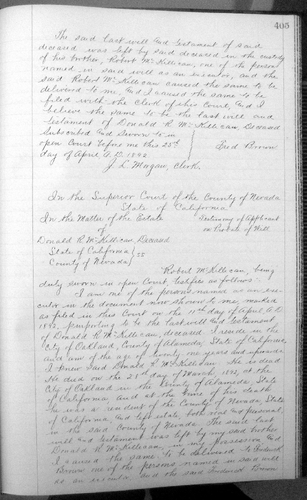 405
The said last will and testament of said
deceased was left by said deceased in the custody
of his brother, Robert McKillican, one of the persons
named in said will as an executor, and the
said Robert McKillican caused the same to be
delivered to me, and I caused the same to be
filed with the Clerk of this Court, and I
believe the same to be the last will and
testament of Donald R. McKillican, Deceased
Subscribed and Sworn to in
open Court before me this 25th
Fred Brown
day of April A.D. 1892.
J. L. Morgan, Clerk.
In the Superior Court of the County of Nevada
State of California
In the Matter of the Estate
Testimony of Applicant
of
on Probate of Will.
Donald R. McKillican, Deceased
State of California
County of Nevada } SS
Robert McKillican, being
duly sworn in open Court, testifies as follows:
I am one of the persons named as an exe-
cutor in the document now shown to me, marked
as filed in this Court on the 11th day of April A.D.
1892, purporting to be the last will and testament
of Donald R. McKillican, deceased. I reside in the
City of Oakland, County of Alameda, State of California,
and am of the age of twenty one years and upwards
I knew said Donald R. McKillican. He is dead
He died on the 28th day of March, 1892, at the
City of Oakland in the County of Alameda State
of California, and at the time of his death
he was a resident of the County of Nevada, State
of California, and left estate both real and personal
in the said County of Nevada. The said last
will and testament was left by my said brother
Donald R. McKillican, in my possession and
I caused the same to be delivered to Frederick
Brown one of the persons named in said will
as an executor and the said Frederick Brown